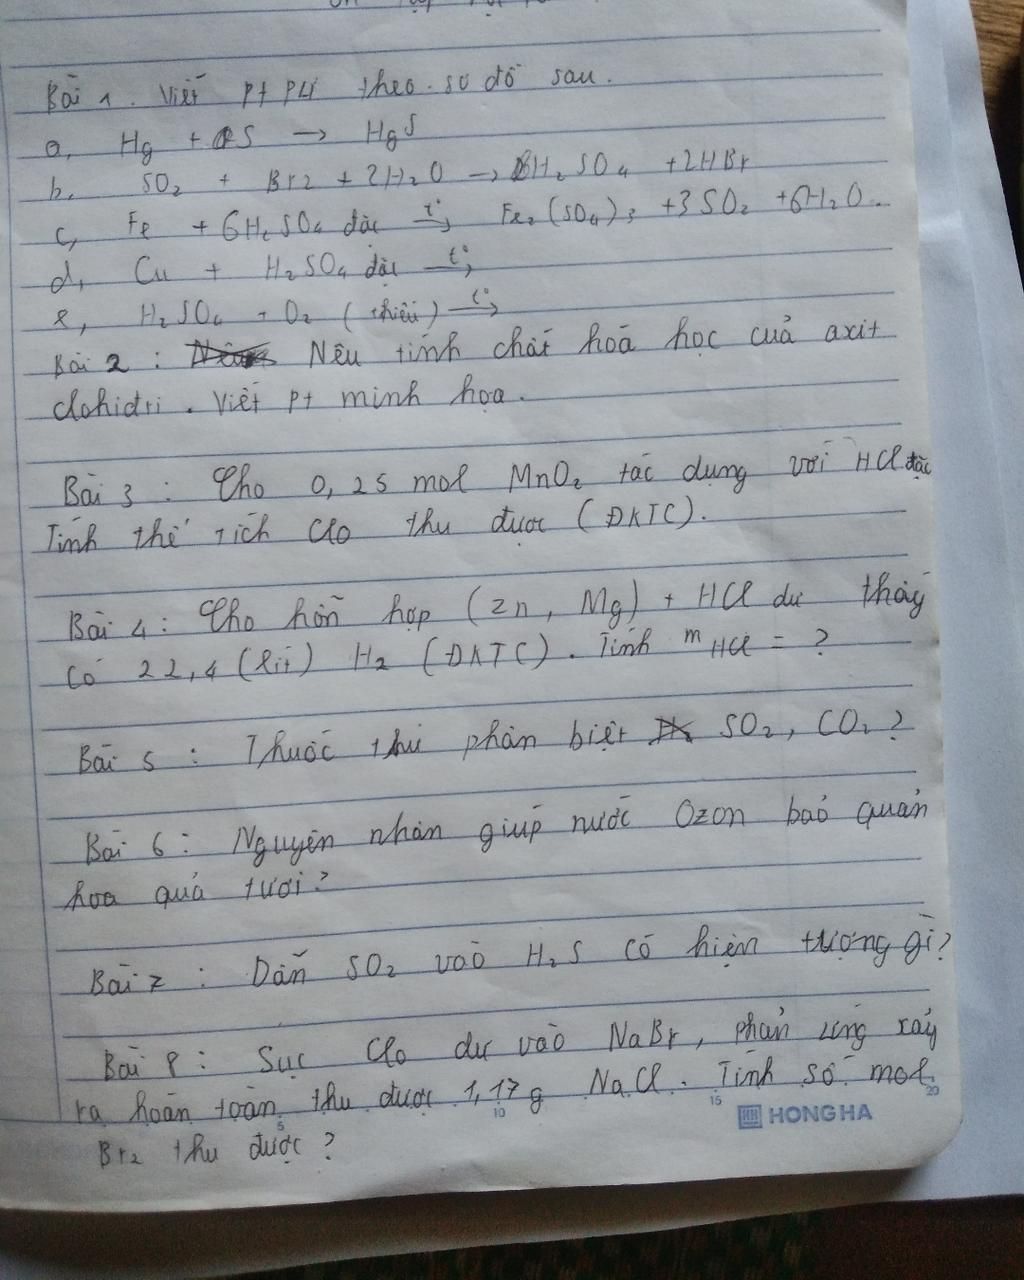 Bài 1. Viết pt pư theo sơ đồ sau.
a, Hg + S → HgS
b, SO2 + Br2 + 2H2O → H2SO4 + 2HBr
c, Fe + 6H2SO4 đặc t° Fe2(SO4)3 + 3SO2 + 6H2O.
d, Cu + H2SO4 đặc t°
e, H2SO4 + O2 (thiếu) t°→
Bài 2 : Nêu tính chất hoá học của axit
clohidri. Viết pt minh họa.
Bài 3 : Cho 0,25 mol MnO2 tác dụng với HCl đặc
Tính thể tích Clo thu được (ĐKTC).
Bài 4 : Cho hỗn hợp (Zn, Mg) + HCl dư thấy
có 22,4 (lít) H2 (ĐKTC). Tính mHCl = ?
Bài 5 : Thuốc thử phân biệt SO2, CO2 ?
Bài 6 : Nguyên nhân giúp nước Ozon bảo quản
hoa quả tươi ?
Bài 7 : Dẫn SO2 vào H2S có hiện tượng gì ?
Bài 8 : Sục Clo dư vào NaBr, phản ứng xảy
ra hoàn toàn thu được 1,17g NaCl. Tính số mol
Br2 thu được ?
5 10 15 20
HONG HA